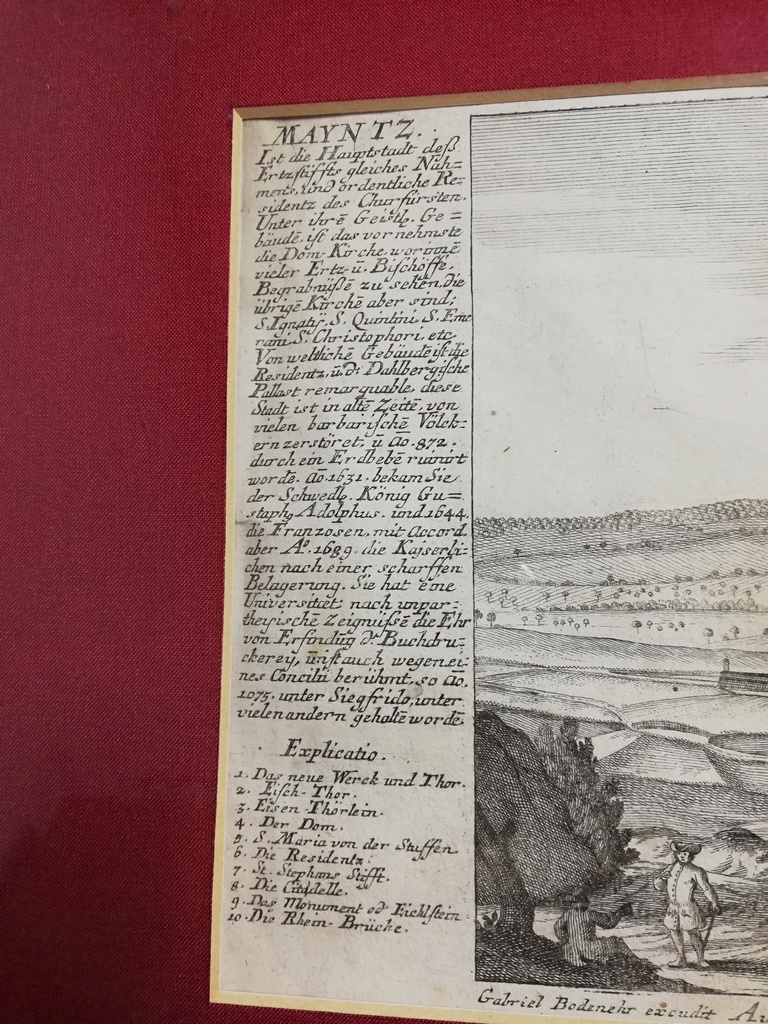 MAYNTZ.
Ist die Hauptstadt deß
Ertzstiffts gleiches Nah=
mens, und ordentliche Re=
sidentz des Churfürsten.
Unter ihrē Geistl. Ge=
bäudē, ist das vornehmste
die Dom-Kirche, worinnē
vieler Ertz-ū. Bischöffe,
Begrabnüßē zu sehen, die
übrigē Kirchē aber sind;
S. Ignatij, S. Quintini, S. Eme
rani, S. Christophori, etc.
Von weltlichē Gebäudē ist die
Residentz, ū. dʒ Dahlbergische
Pallast remarquable, diese
Stadt ist in altē Zeitē, von
vielen barbarischē Völck=
ern zerstöret, ū Ao. 872.
durch ein Erdbebē ruinirt
wordē. Ao. 1631. bekam Sie
der Schwedl. König Gu=
staphg Adolphus. und 1644.
die Franzosen, mit Accord
aber Aº. 1689. die Kaÿserli=
chen nach einer scharffen
Belagerung. Sie hat eine
Universitæt: nach unpar=
theyischē Zeignüßē die Ehr
von Erfindūg dʒ Buchdru=
ckerey, ūn ist auch wegen ei=
nes Concilii berühmt, so Ao.
1075. unter Siegfrido, unter
vielen andern gehaltē wordē.
Explicatio.
1. Das neue Werck und Thor.
2. Fisch-Thor.
3. Eisen-Thörlein.
4. Der Dom.
5. S. Maria von der Stuffen.
6. Die Residentz.
7. St. Stephans Stifft.
8. Die Citadelle.
9. Das Monument od Eichlstein
10. Die Rhein-Brücke.
Gabriel Bodenehr excudit Au